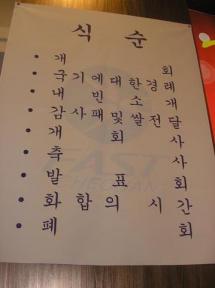 식 순
• 개 회
• 국기에 대한 경례
• 내 빈 소 개
• 감사패 및 쌀 전달
• 개 회 사
• 축 사
• 발 표 회
• 화합의 시간
• 폐 회